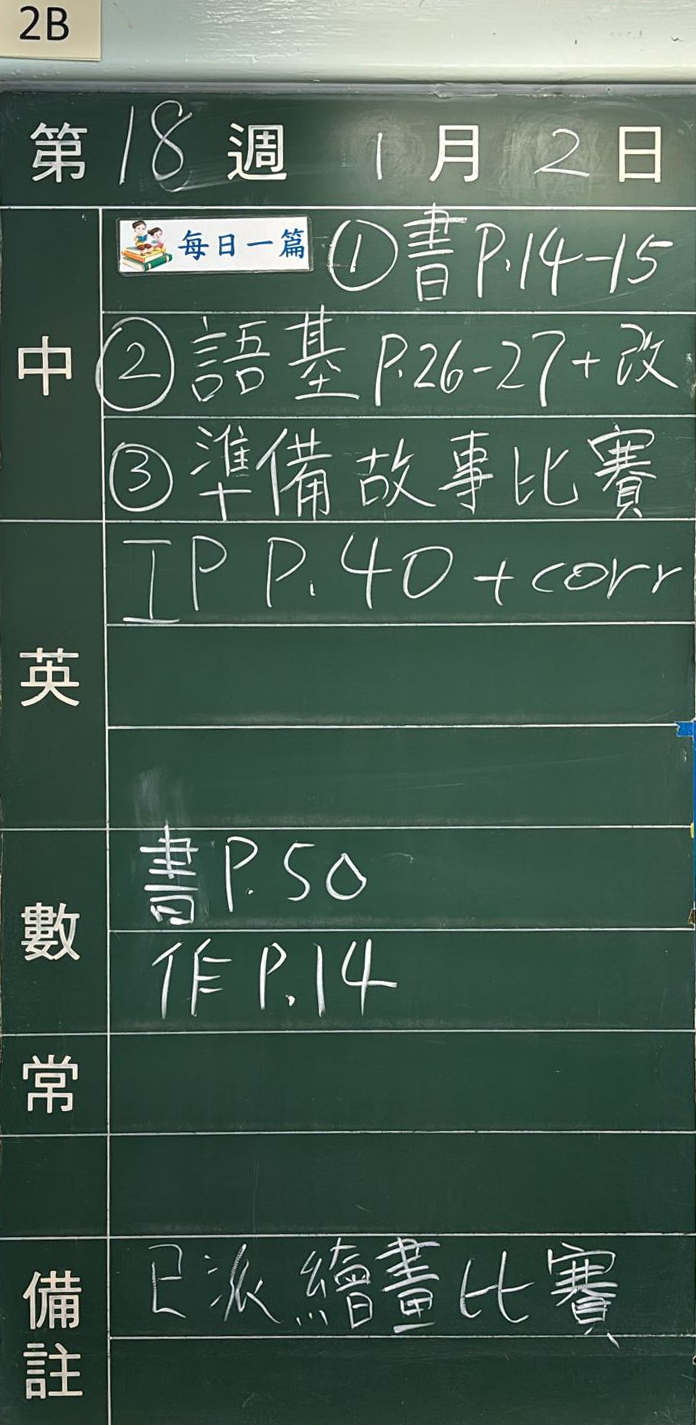 2B
第 18 週 1 月 2 日
中
每日一篇 ①書P.14-15
②語基P.26-27+改
③準備故事比賽
英
IP P.40 +corr
數
書P.50
作P.14
常
備註
已派繪畫比賽